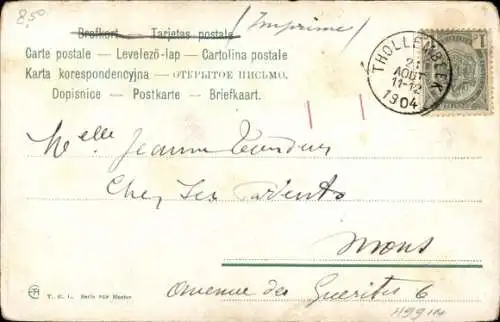 8,50
Brefkort — Tarjetas postale (Imprimé)
Carte postale — Levelező-lap — Cartolina postale
Karta korespondencyjna — ОТКРЫТОЕ ПИСЬМО.
Dopisnice — Postkarte — Briefkaart.
THOLLEMBEEK
AOUT
11-12
1904
1
Melle Jeanne
Chez Ses Parents
Mons
T. S. L. Serie
Avenue des Guérites 6